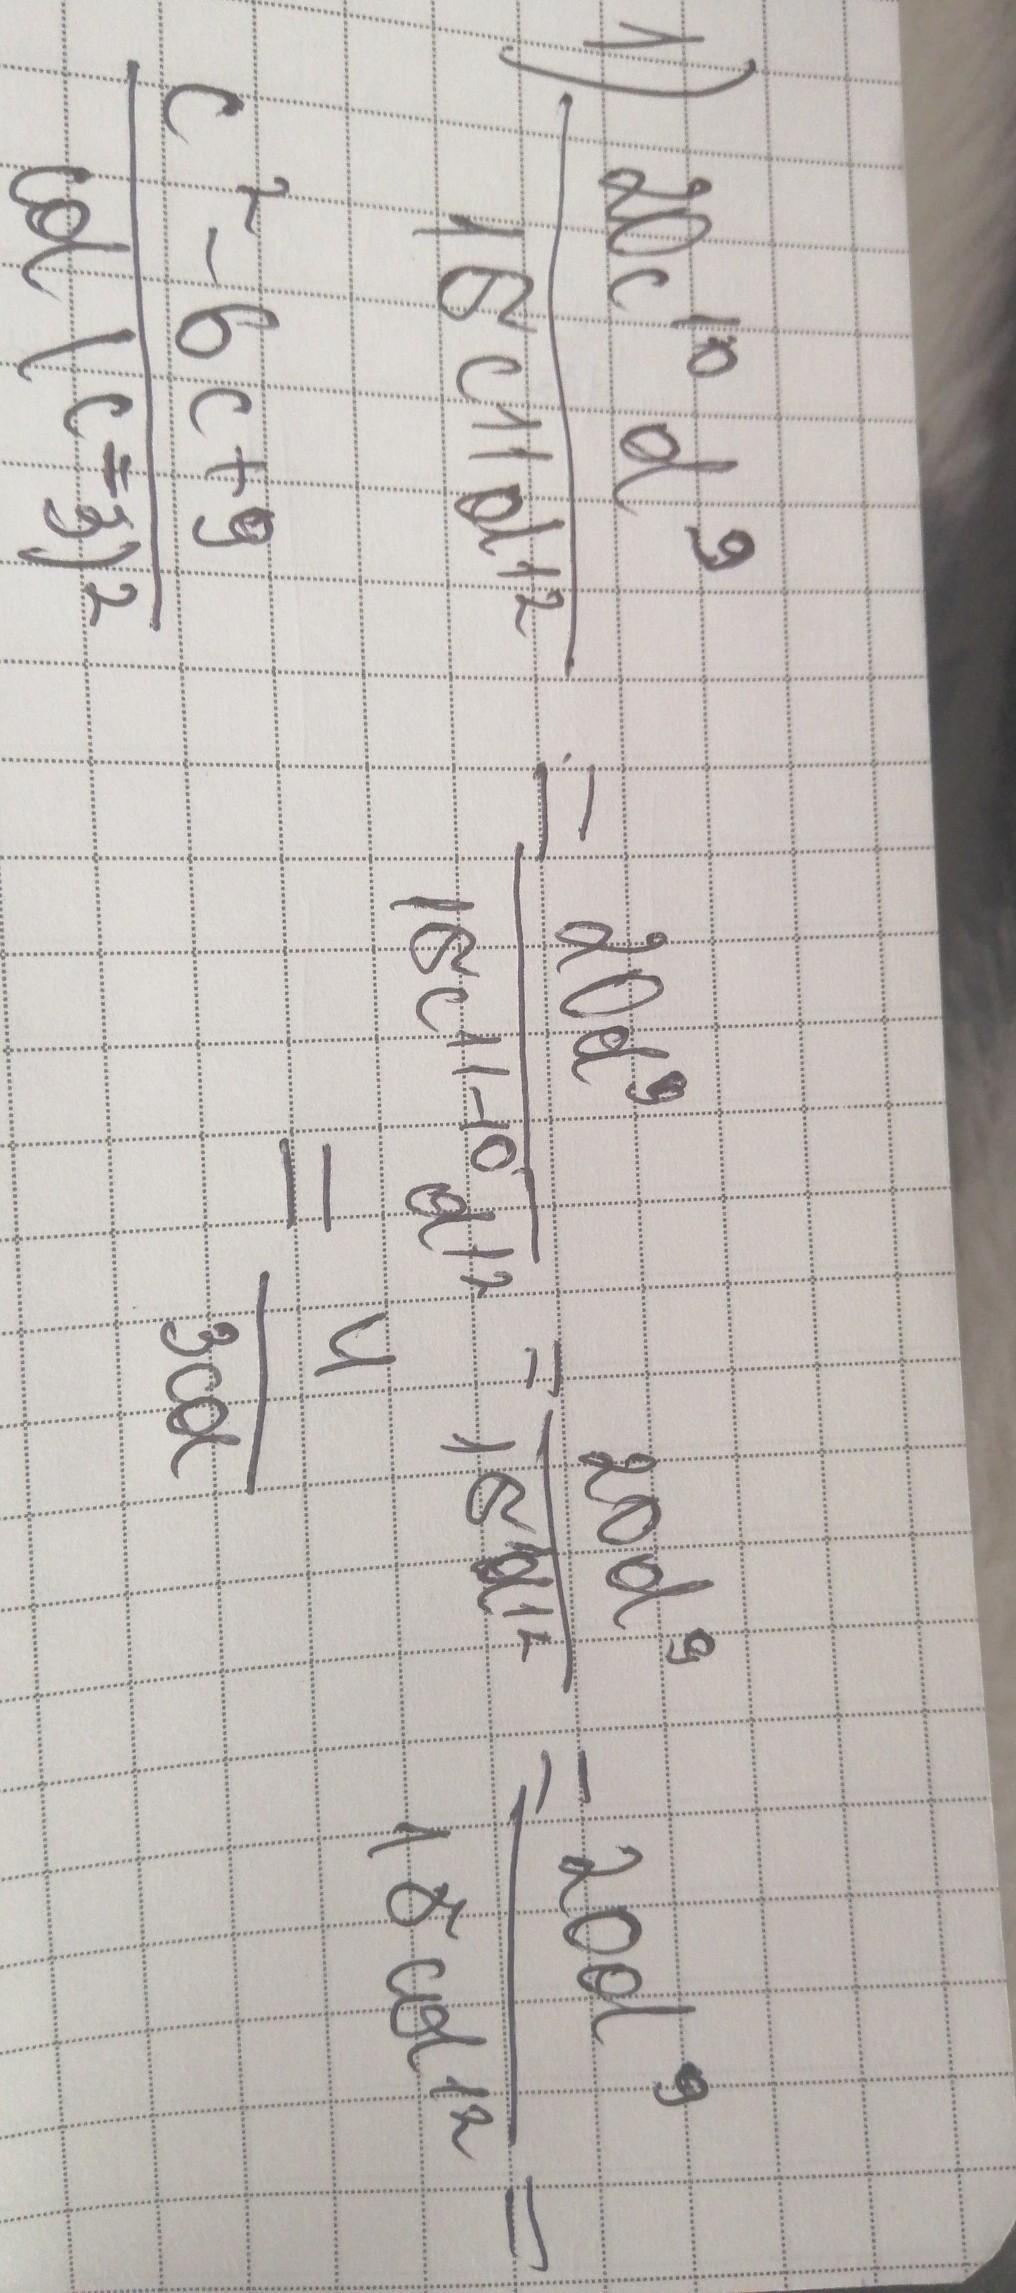 1) 20c^10 d^9 / 15c^11 d^12 = 20d^9 / 15c^11-10 d^12 = 20d^9 / 15d^12 = 20d^9 / 15cd^12 =
= 4 / 3cd
c^2 - 6c + 9 / cd(c-3)^2